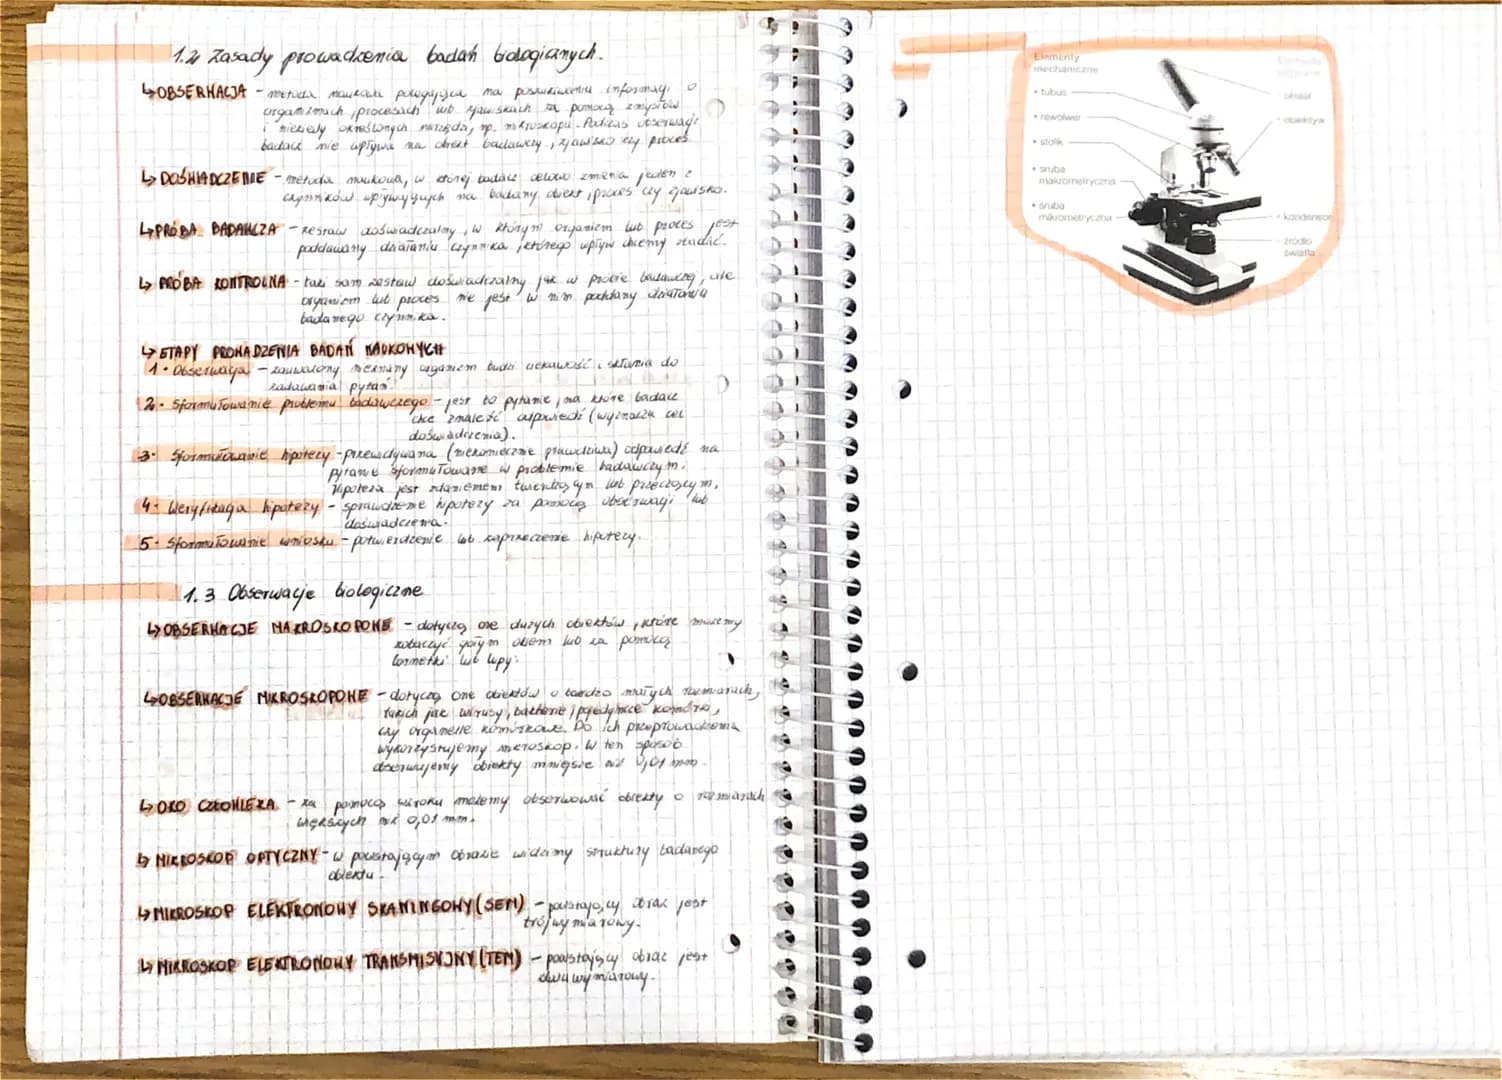 1.2 Zasady prowadzenia badań biologicznych.
↳OBSERWACJA - metoda naukowa polegająca na poszukiwaniu informacji o
organizmach, procesach lub zjawiskach za pomocą zmysłów
i niekiedy określonych narzędzi, np. mikroskopu. Podczas obserwacji
badacz nie wpływa na obiekt badawczy, zjawisko czy proces
↳DOŚWIADCZENIE - metoda naukowa, w której badacz celowo zmienia jeden z
czynników wpływających na badany obiekt, proces czy zjawisko.
↳PRÓBA BADAWCZA - zestaw doświadczalny, w którym organizm lub proces jest
poddawany działaniu czynnika, którego wpływ chcemy zbadać.
↳PRÓBA KONTROLNA - taki sam zestaw doświadczalny jak w próbie badawczej, ale
organizm lub proces nie jest w nim poddany działaniu
badanego czynnika.
↳ETAPY PROWADZENIA BADAŃ NAUKOWYCH
1. Obserwacja - zauważony nieznany organizm budzi ciekawość i skłania do
zadawania pytań.
2. Sformułowanie problemu badawczego - jest to pytanie, na które badacz
chce znaleźć odpowiedź (wyznacza cel
doświadczenia).
3. Sformułowanie hipotezy - przewidywana (niekoniecznie prawdziwa) odpowiedź na
pytanie sformułowane w problemie badawczym.
Hipoteza jest zdaniem twierdzącym lub przeczącym.
4. Weryfikacja hipotezy - sprawdzenie hipotezy za pomocą obserwacji lub
doświadczenia.
5. Sformułowanie wniosku - potwierdzenie lub zaprzeczenie hipotezy.
1.3 Obserwacje biologiczne
↳OBSERWACJE MAKROSKOPOWE - dotyczą one dużych obiektów, które możemy
zobaczyć gołym okiem lub za pomocą
lornetki lub lupy.
↳OBSERWACJE MIKROSKOPOWE - dotyczą one obiektów o bardzo małych rozmiarach,
takich jak wirusy, bakterie, pojedyncze komórki,
czy organelle komórkowe. Do ich przeprowadzenia
wykorzystujemy mikroskop. W ten sposób
obserwujemy obiekty mniejsze niż 0,01 mm.
↳OKO CZŁOWIEKA - za pomocą wzroku możemy obserwować obiekty o rozmiarach
większych niż 0,01 mm.
↳MIKROSKOP OPTYCZNY - w powstającym obrazie widzimy struktury badanego
obiektu.
↳MIKROSKOP ELEKTRONOWY SKANINGOWY (SEM) - powstający obraz jest
trójwymiarowy.
↳MIKROSKOP ELEKTRONOWY TRANSMISYJNY (TEM) - powstający obraz jest
dwuwymiarowy.
Elementy
mechaniczne
• tubus
• rewolwer
• stolik
• śruba
makrometryczna
• śruba
mikrometryczna
Elementy
optyczne
• okular
• obiektyw
• kondensor
• źródło
światła